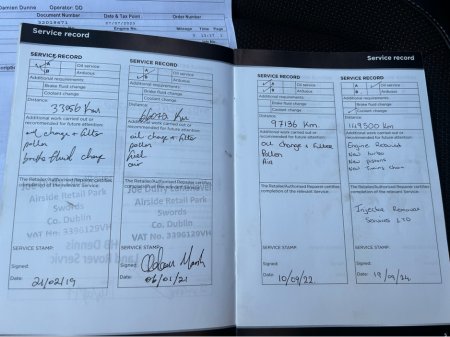 Damien Dunne Operator: OD
Document Number Date & Tax Point Order Number
07/07/2023
Engine No. Mileage Time Page
Service record
SERVICE RECORD
A Oil service
B Adblue
Additional requirements:
Brake fluid change
Coolant change
Distance:
33056 Km
Additional work carried out or
recommended for future attention:
oil change + filter
pollen
brake fluid change
The Retailer/Authorised Repairer certifies
completion of the relevant Service.
Airside Retail Park
Swords
Co. Dublin
VAT No: 3396129VH
SERVICE STAMP:
Signed:
Date: 21/02/19
SERVICE RECORD
A Oil service
B
Additional requirements:
Brake fluid change
Coolant change
Distance:
Km
Additional work carried out or
recommended for future attention:
oil change + filter
pollen
fuel
air
The Retailer/Authorised Repairer certifies
completion of the relevant Service.
Airside Retail Park
Swords
Co. Dublin
VAT No. 3396129VH
SERVICE STAMP:
Signed:
Date: 06/01/21
Service record
SERVICE RECORD
A Oil service
B
Additional requirements:
Brake fluid change
Coolant change
Distance:
97136 Km
Additional work carried out or
recommended for future attention:
Oil change + Filter
Pollen
Air
The Retailer/Authorised Repairer certifies
completion of the relevant Service.
SERVICE STAMP:
Signed:
Date: 10/09/22.
SERVICE RECORD
A Oil service
B
Additional requirements:
Brake fluid change
Coolant change
Distance:
149500 Km
Additional work carried out or
recommended for future attention:
Engine Rebuild
New turbo
New pistons
New Timing Chain
The Retailer/Authorised Repairer certifies
completion of the relevant Service.
Injector Removal
Services LTD
SERVICE STAMP:
Signed:
Date: 19/09/24.